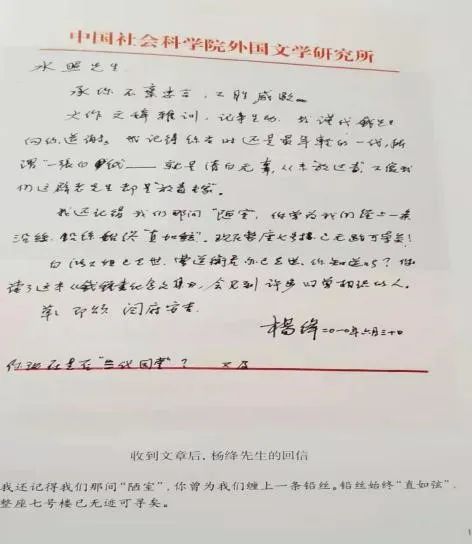 中国社会科学院外国文学研究所
水照先生
承你不弃
大作文雅驯，记事生动
向你道谢。我记得你当时还是最年轻的一代，所
谓"一张白纸——就是清白无辜，从未放过毒，不像我
们这辈老先生都是"放毒"
我还记得我们那间"陋室"，你曾为我们缠上一条
铅丝。铅丝始终"直如弦"。现在整座七号楼已无迹可寻矣！
已去世，你知道吗？你
读了这本《钱锺书纪念文集》，会见到许多旧曾相识的人。
即颂 阖府安吉
杨绛 二〇一〇年六月三十日
你现在是否"当代国学"？ 又及
收到文章后，杨绛先生的回信
我还记得我们那间"陋室"，你曾为我们缠上一条铅丝。铅丝始终"直如弦"，
整座七号楼已无迹可寻矣。
1